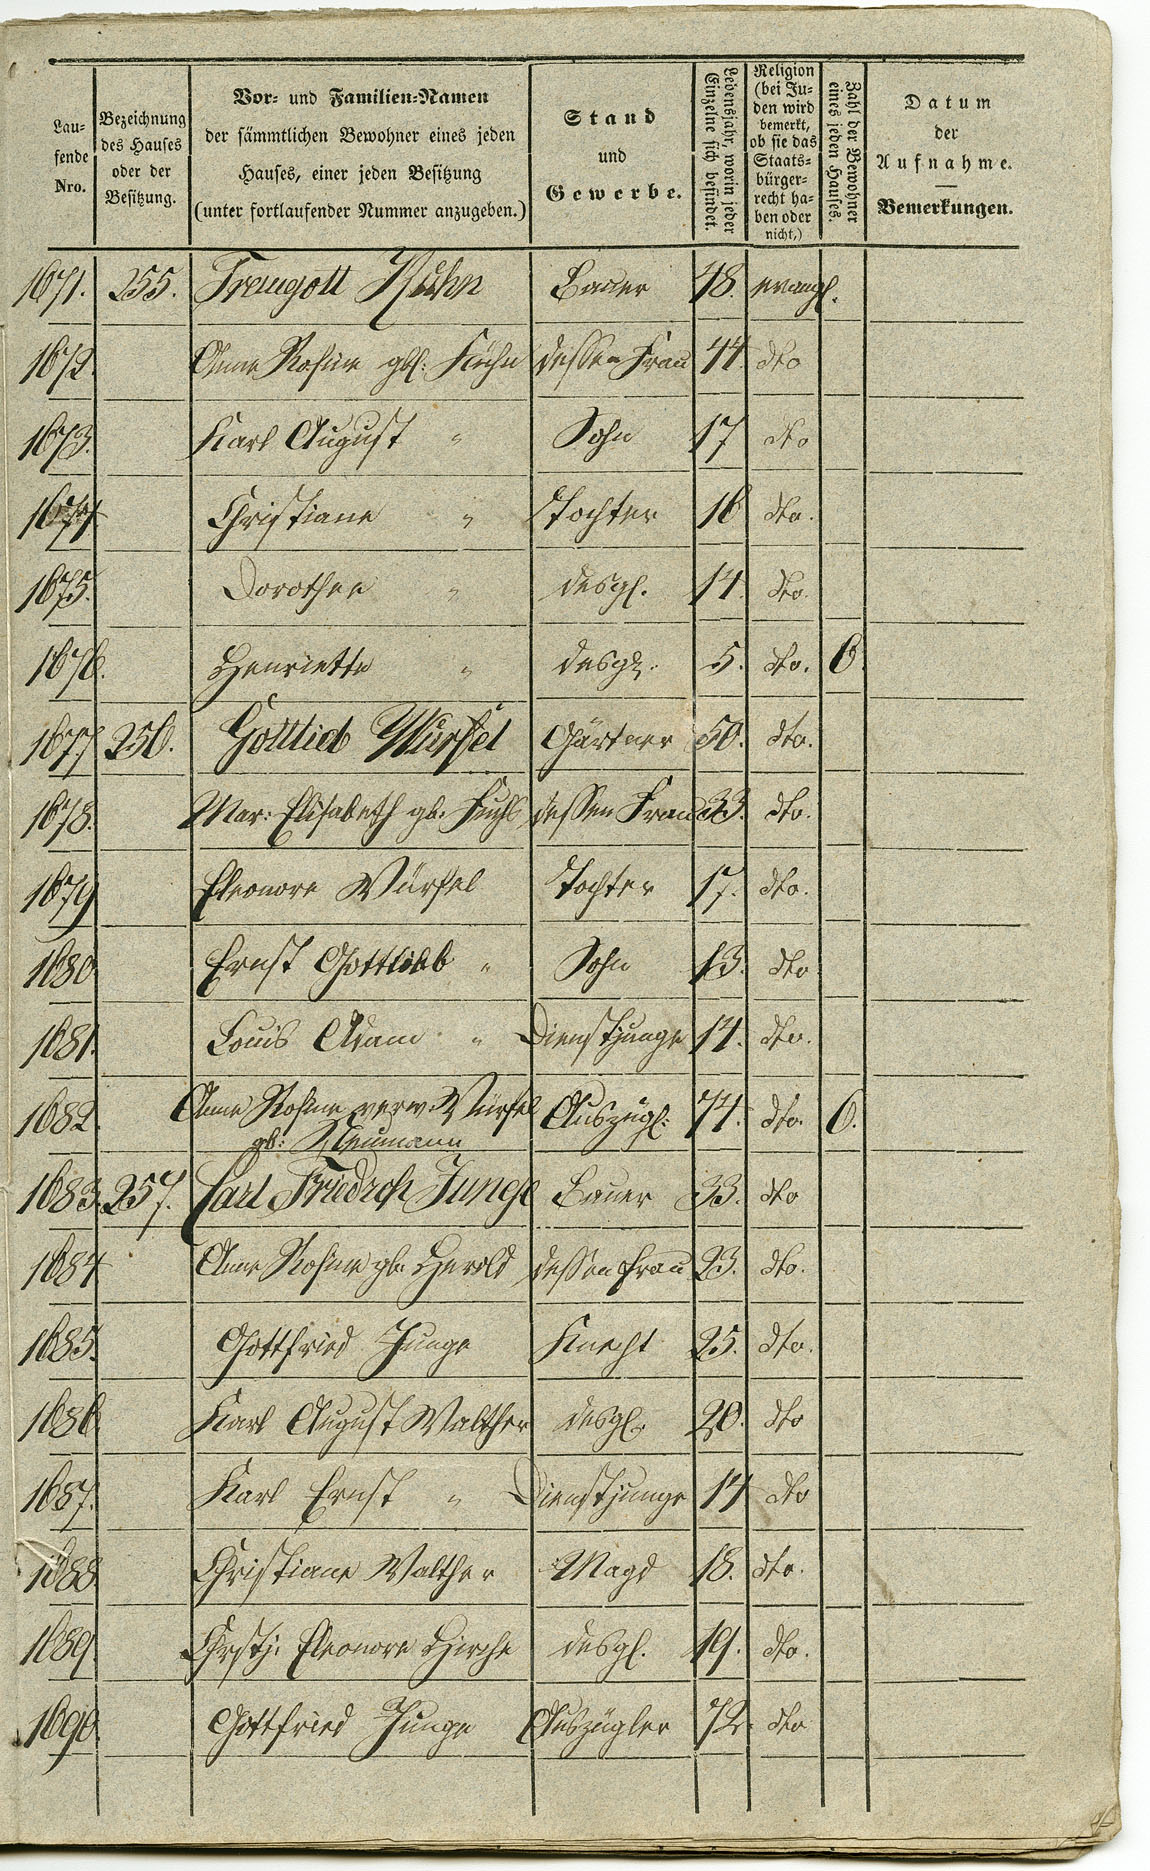 Lau-
fende
Nro.
Bezeichnung
des Hauses
oder der
Besitzung.
Vor- und Familien-Namen
der sämmtlichen Bewohner eines jeden
Hauses, einer jeden Besitzung
(unter fortlaufender Nummer anzugeben.)
Stand
und
Gewerbe.
Lebensjahr, worin jeder
Einzelne sich befindet.
Religion
(bei Ju-
den wird
bemerkt,
ob sie das
Staats-
bürger-
recht ha-
ben oder
nicht,)
Zahl der Bewohner
eines jeden Hauses.
Datum
der
Aufnahme.
Bemerkungen.
1671. 255. Treugott Kühn Bauer 48. evangl.
1672. Anne Rosine gbl: Kühn dessen Frau 44. dto
1673. Karl August " Sohn 17 dto
1674 Christiane " Tochter 16 dto.
1675. Dorothee " desgl. 14. dto.
1676. Henriette " desgl. 5. dto. 6.
1677 256. Gottlieb Würfel Gärtner 50. dto.
1678. Mar: Elisabeth gb. Fuchs dessen Frau 33. dto.
1679 Eleonore Würfel Tochter 17. dto.
1680 Ernst Gottlieb " Sohn 13. dto
1681. Louis Adam " Dienstjunge 14. dto.
1682. Anne Rosine verw. Würfel Auszügl: 74. dto. 6.
gb: Neumann
1683. 257. Carl Friedrch Junge Bauer 33. dto
1684 Anne Rosine gb. Herold dessen Frau 23. dto.
1685. Gottfried Junge Knecht 25. dto.
1686. Karl August Walther desgl. 20. dto
1687. Karl Ernst " Dienstjunge 14 dto
1688. Christiane Walther Magd 18. dto.
1689. Chrstj: Eleonore Hirche desgl. 19. dto.
1690. Gottfried Junge Auszügler 72. dto